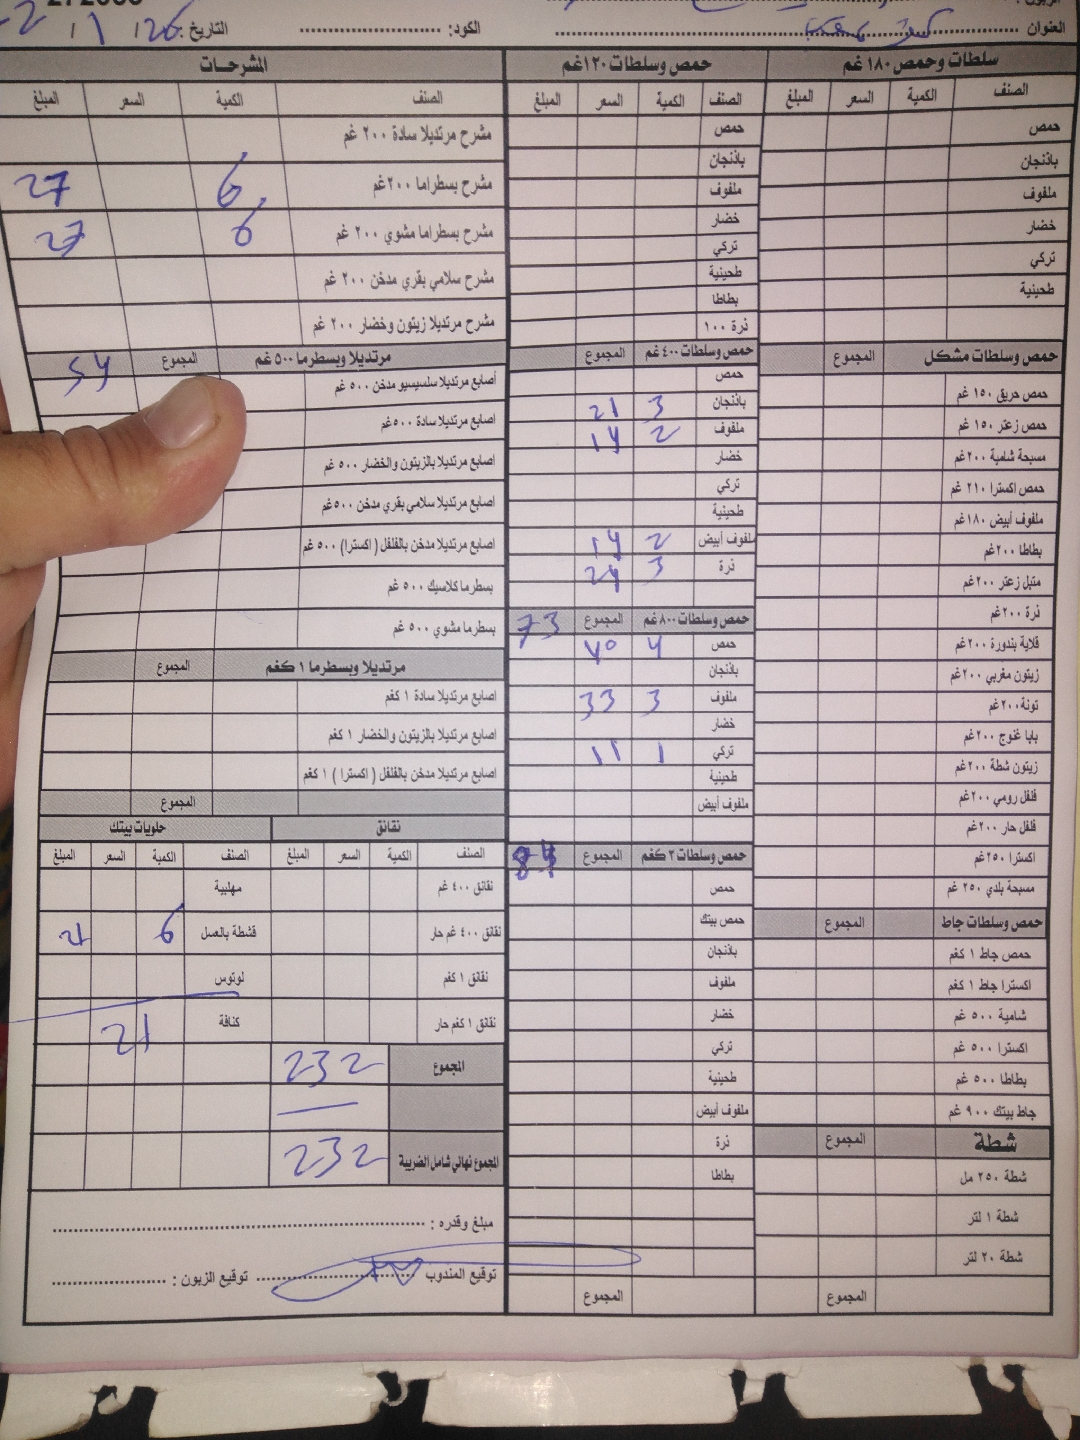 العنوان الكود: التاريخ: 26 / 1 / 2
سلطات وحمص ١٨٠ غم
الصنف الكمية السعر المبلغ
حمص
باذنجان
ملفوف
خضار
تركي
طحينية
حمص وسلطات مشكل المجموع
حمص حريق ١٥٠ غم
حمص زعتر ١٥٠ غم
مسبحة شامية ٢٠٠غم
حمص اكسترا ٢١٠ غم
ملفوف أبيض ١٨٠غم
بطاطا ٢٠٠غم
متبل زعتر ٢٠٠غم
ذرة ٢٠٠غم
قلاية بندورة ٢٠٠غم
زيتون مغربي ٢٠٠غم
تونة ٢٠٠غم
بابا غنوج ٢٠٠غم
زيتون شطة ٢٠٠غم
فلفل رومي ٢٠٠غم
فلفل حار ٢٠٠غم
اكسترا ٢٥٠غم
مسبحة بلدي ٢٥٠ غم
حمص وسلطات جاط المجموع
حمص جاط ١ كغم
اكسترا جاط ١ كغم
شامية ٥٠٠ غم
اكسترا ٥٠٠ غم
بطاطا ٥٠٠ غم
جاط بيتك ٩٠٠ غم
شطة المجموع
شطة ٢٥٠ مل
شطة ١ لتر
شطة ٢٠ لتر
المجموع
حمص وسلطات ١٢٠غم
الصنف الكمية السعر المبلغ
حمص
باذنجان
ملفوف
خضار
تركي
طحينية
بطاطا
ذرة ١٠٠
حمص وسلطات ٤٠٠ غم المجموع 73
حمص
باذنجان 3 21
ملفوف 2 14
خضار
تركي
طحينية
ملفوف أبيض 2 14
ذرة 3 24
حمص وسلطات ٨٠٠ غم المجموع
حمص 4 40
باذنجان
ملفوف 3 33
خضار
تركي 1 11
طحينية
ملفوف أبيض
حمص وسلطات ٢ كغم المجموع 84
حمص
حمص بيتك
باذنجان
ملفوف
خضار
تركي
طحينية
ملفوف أبيض
ذرة
بطاطا
المجموع
المشرحات
الصنف الكمية السعر المبلغ
مشرح مرتديلا سادة ٢٠٠ غم
مشرح بسطراما ٢٠٠غم 6 27
مشرح بسطراما مشوي ٢٠٠ غم 6 27
مشرح سلامي بقري مدخن ٢٠٠ غم
مشرح مرتديلا زيتون وخضار ٢٠٠ غم
مرتديلا وبسطرما ٥٠٠ غم المجموع 54
أصابع مرتديلا سلسيسيو مدخن ٥٠٠ غم
اصابع مرتديلا سادة ٥٠٠غم
اصابع مرتديلا بالزيتون والخضار ٥٠٠ غم
اصابع مرتديلا سلامي بقري مدخن ٥٠٠غم
اصابع مرتديلا مدخن بالفلفل (اكسترا) ٥٠٠ غم
بسطرما كلاسيك ٥٠٠ غم
بسطرما مشوي ٥٠٠ غم
مرتديلا وبسطرما ١ كغم المجموع
اصابع مرتديلا سادة ١ كغم
اصابع مرتديلا بالزيتون والخضار ١ كغم
اصابع مرتديلا مدخن بالفلفل (اكسترا) ١ كغم
المجموع
نقانق
الصنف الكمية السعر المبلغ
نقانق ٤٠٠ غم
نقانق ٤٠٠ غم حار
نقانق ١ كغم
نقانق ١ كغم حار
حلويات بيتك
الصنف الكمية السعر المبلغ
مهلبية
قشطة بالعسل 6 21
لوتوس
كنافة 21
المجموع 232
المجموع نهائي شامل الضريبة 232
مبلغ وقدره :
توقيع المندوب توقيع الزبون :